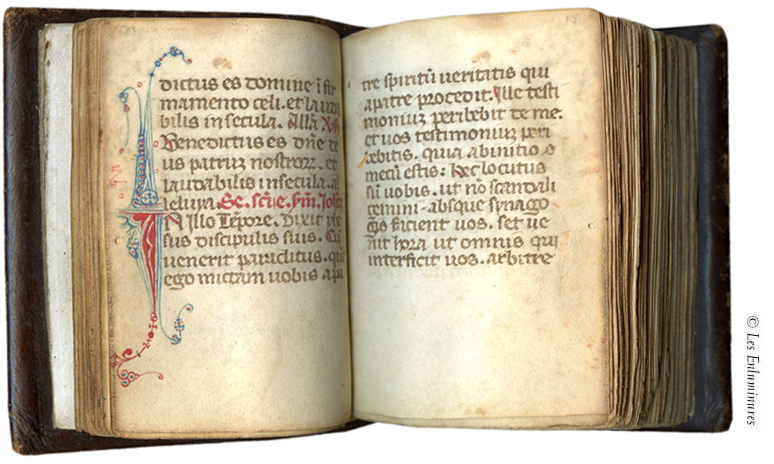 dictus es domine ī fir
mamento celi. et lauda
bilis in secula. Allā
Benedictus es dn̄e de
us patruȝ nostroꝝ. et
laudabilis in secula. al
leluya. Sc̄.
N illo Tēpore. Dixit ihe
sus discipulis suis. Cū
venerit paraclitus. quē
ego mictam vobis a pa
tre spiritū ueritatis qui
a patre procedit. Ille testi
moniuȝ peribebit de me.
et uos testimoniuȝ peri
bebitis. quia ab initio
mecū estis: Hec locutus
sū uobis. ut nō scandali
cemini. absque synago
gis facient uos. set ue
nit hora ut omnis qui
interficit uos. arbitre
© Les Enluminures